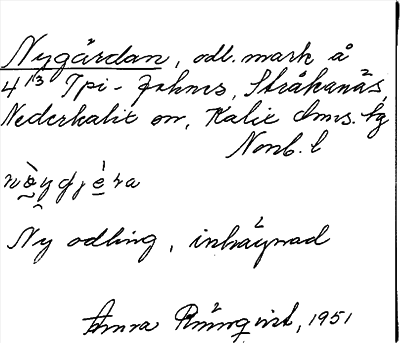 Nygärdan, odl. mark å
4/13 Tpi-Johns, Stråkanäs,
Nederkalix sn, Kalix dms. tg
Norrb. l
Ny odling, inhägnad
Anna Rönnqvist, 1951